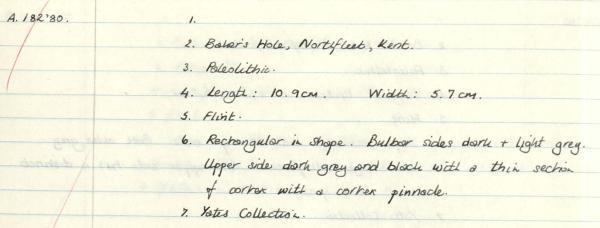 A.182'80.
1.
2. Baker's Hole, Northfleet, Kent.
3. Paleolithic.
4. Length: 10.9cm. Width: 5.7cm.
5. Flint.
6. Rectangular in shape. Bulbar sides dark + light grey.
Upper side dark grey and black with a thin section
of cortex with a cortex pinnacle.
7. Yates Collection.